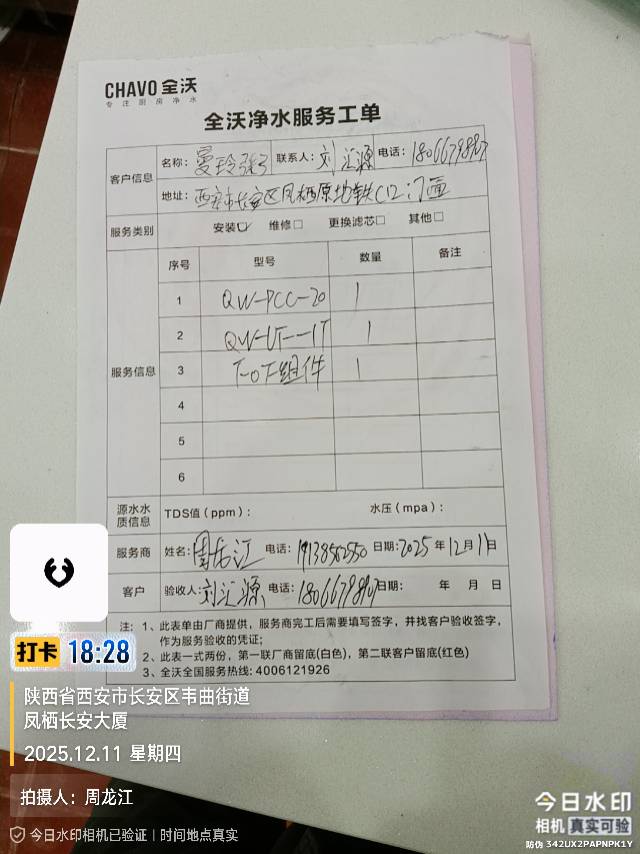 CHAVO 全沃
专注厨房净水
全沃净水服务工单
客户信息
名称：曼玲粥 联系人：刘汇源 电话：
地址：西安市长安区凤栖原地铁C口 门面
服务类别 安装☑ 维修□ 更换滤芯□ 其他□
服务信息
序号 型号 数量 备注
1 QW-PCC-20 1
2 QW-UT--1T 1
3 T-OT组件 1
4
5
6
源水水质信息 TDS值（ppm）： 水压（mpa）：
服务商 姓名：周龙江 电话：19138562550 日期：2025年12月11日
客户 验收人：刘汇源 电话： 日期： 年 月 日
注：1、此表单由厂商提供，服务商完工后需要填写签字，并找客户验收签字，
作为服务验收的凭证；
2、此表一式两份，第一联厂商留底(白色)，第二联客户留底(红色)
3、全沃全国服务热线: 4006121926
打卡 18:28
陕西省西安市长安区韦曲街道
凤栖长安大厦
2025.12.11 星期四
拍摄人：周龙江
今日水印相机已验证 | 时间地点真实
今日水印
相机 真实可验
防伪 342UX2PAPNPK1Y